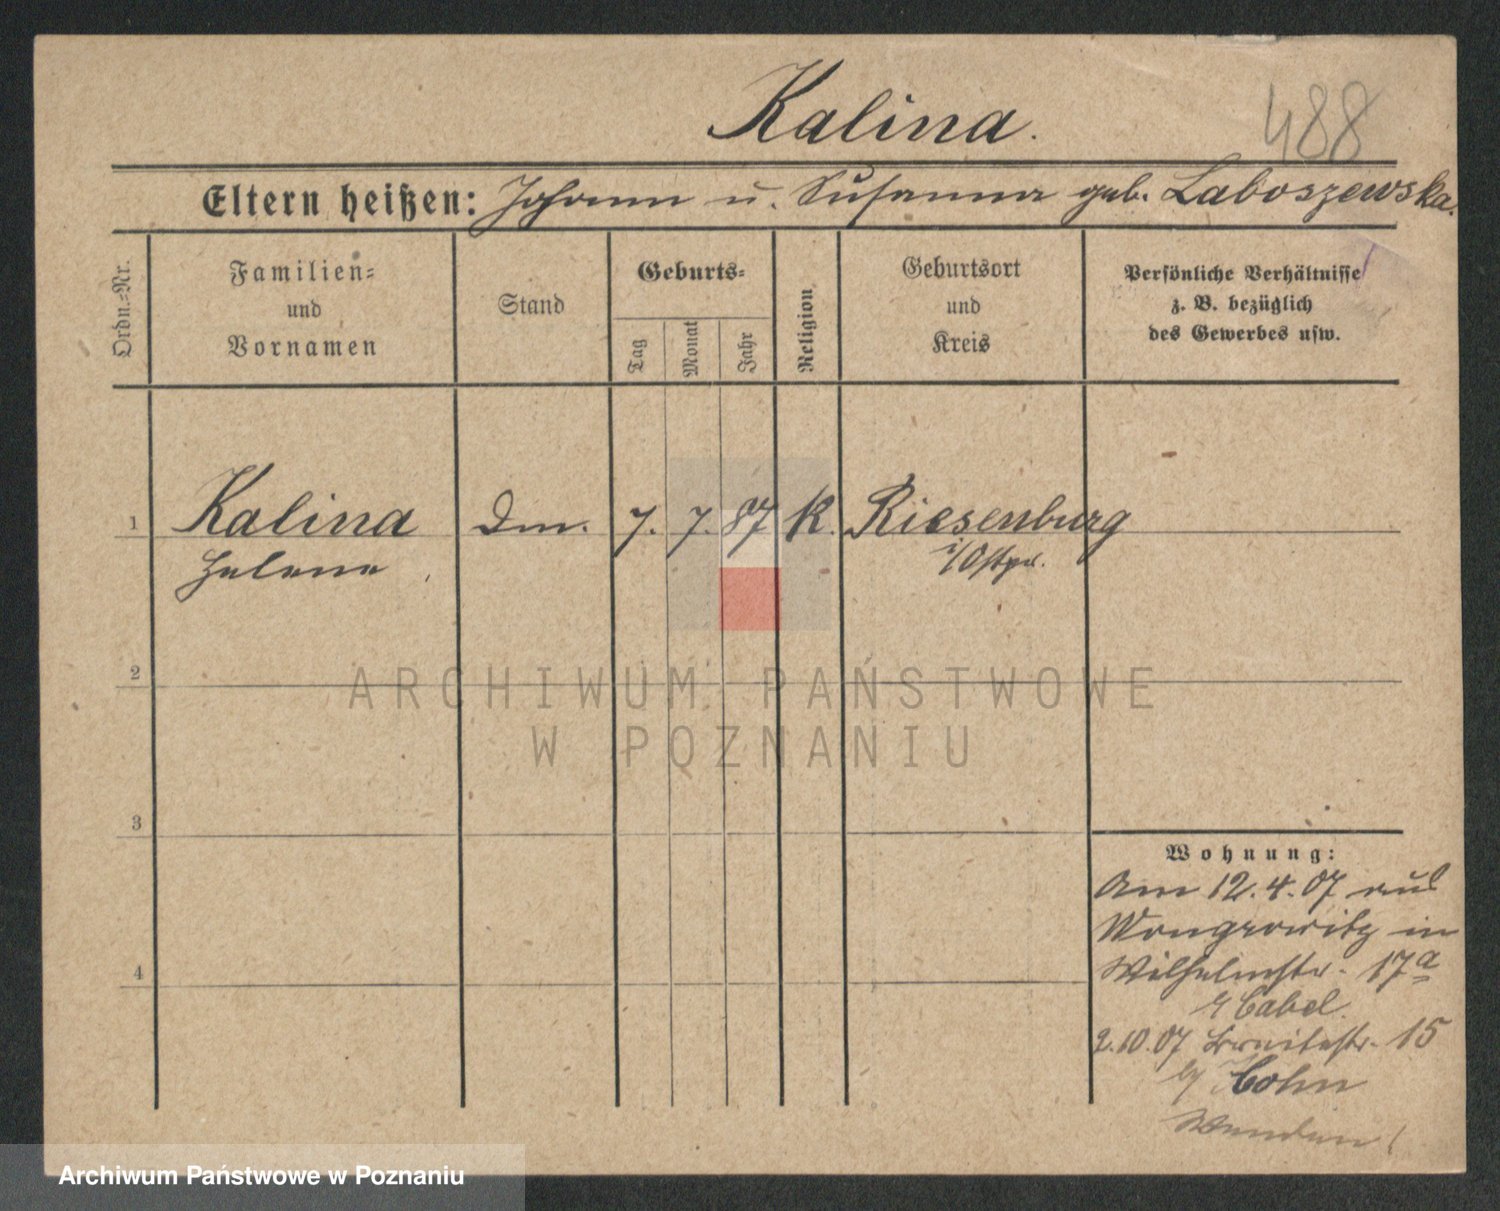 Kalina.
488
Eltern heißen: Johann u. Susanna geb. Laboszewska.
Ordn.=Nr.
Familien=
und
Vornamen
Stand
Geburts=
Tag
Monat
Jahr
Religion
Geburtsort
und
Kreis
Persönliche Verhältnisse
z. B. bezüglich
des Gewerbes usw.
1 Kalina Dm. 7. 7. 87 K. Riesenburg
Helene i/Ostpr.
2
ARCHIWUM PAŃSTWOWE
W POZNANIU
3
Wohnung:
Am 12.4.07 aus
Wongrowitz in
Wilhelmstr. 17a
b/ Cabel.
2.10.07 Breitestr. 15
b/ Cohn
Wenden!
4
Archiwum Państwowe w Poznaniu